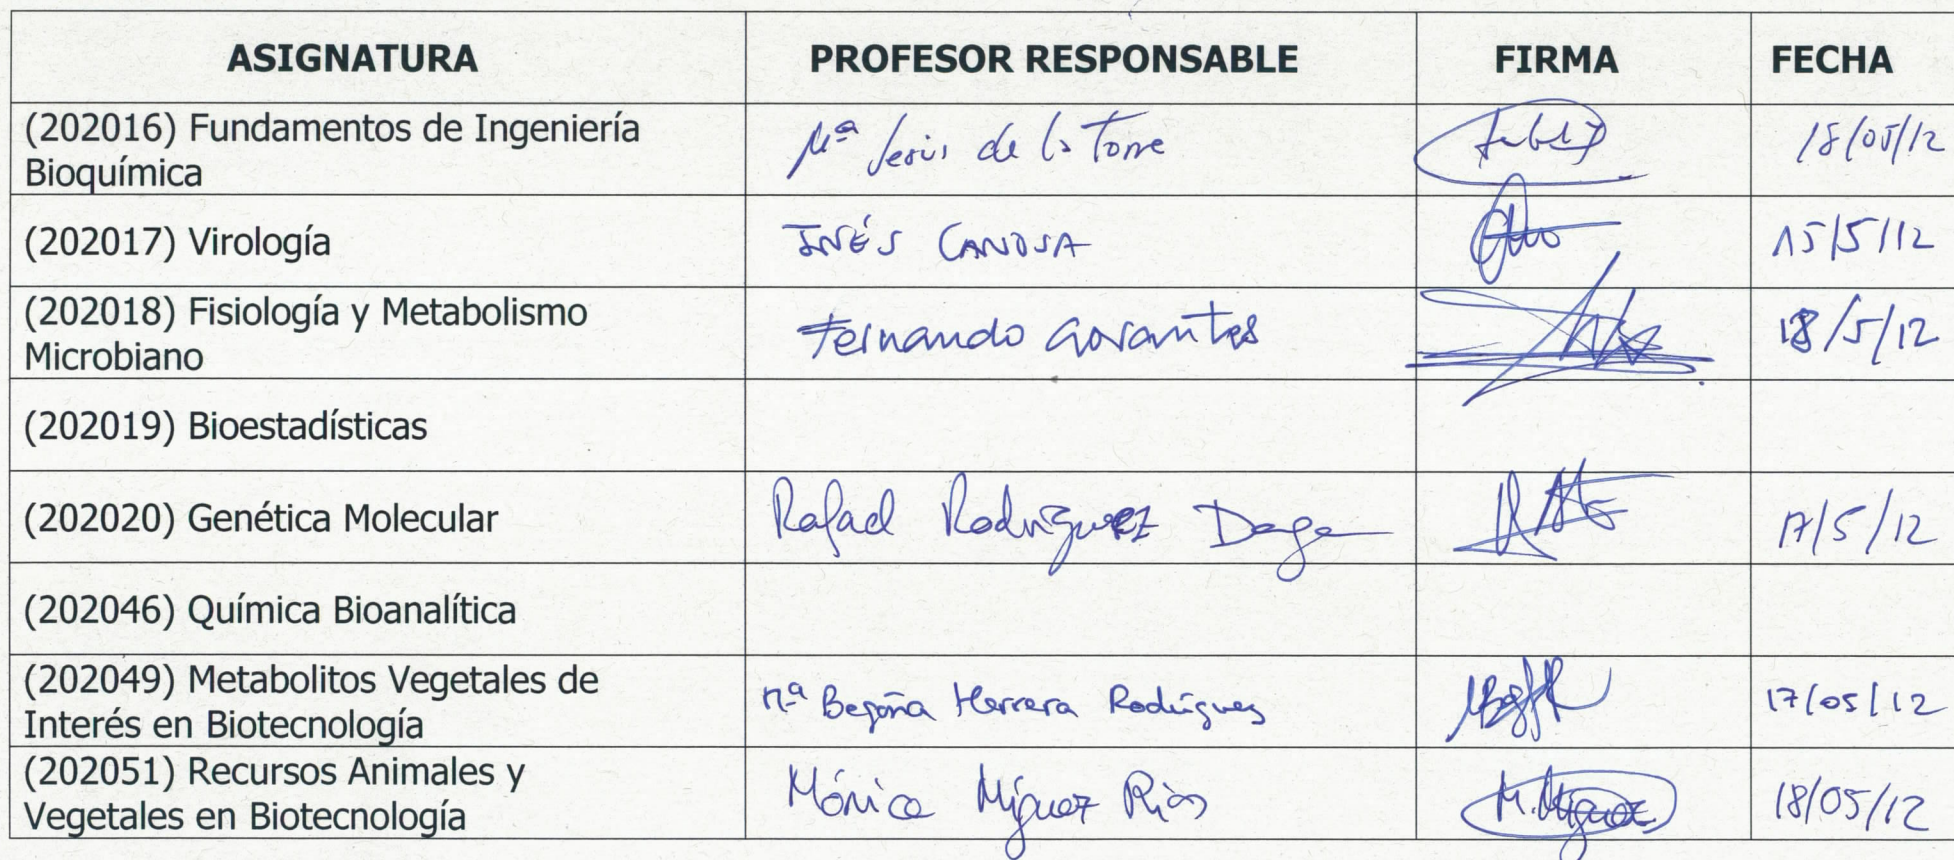 ASIGNATURA PROFESOR RESPONSABLE FIRMA FECHA
(202016) Fundamentos de Ingeniería
Bioquímica
Mª Jesús de la Torre 18/05/12
(202017) Virología INÉS CANOSA 15/5/12
(202018) Fisiología y Metabolismo
Microbiano
Fernando Govantes 18/5/12
(202019) Bioestadísticas
(202020) Genética Molecular Rafael Rodríguez Daga 17/5/12
(202046) Química Bioanalítica
(202049) Metabolitos Vegetales de
Interés en Biotecnología
Mª Begoña Herrera Rodríguez 17/05/12
(202051) Recursos Animales y
Vegetales en Biotecnología
Mónica Míguez Ríos M. Míguez 18/05/12